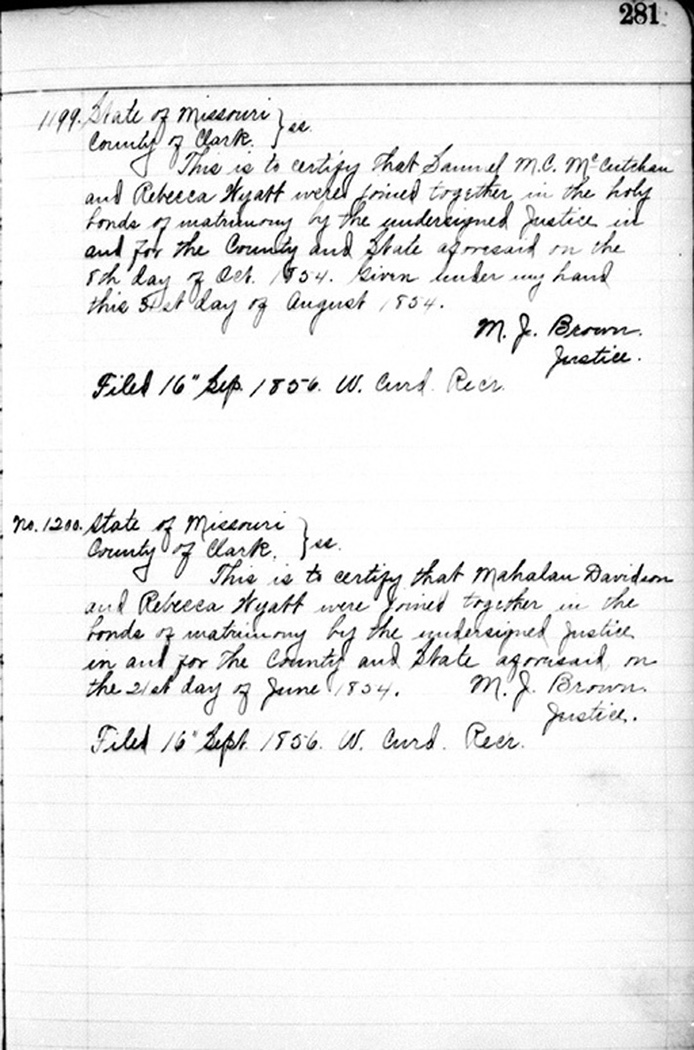 281
1199. State of Missouri } ss.
County of Clark.
This is to certify that Samuel M.C. McCutchan
and Rebecca Wyatt were joined together in the holy
bonds of matrimony by the undersigned Justice in
and for the County and State aforesaid on the
8th day of Oct. 1854. Given under my hand
this 31st day of August 1854.
M. J. Brown.
Justice.
Filed 16" Sep. 1856. W. Curd. Recr.
No. 1200. State of Missouri } ss.
County of Clark.
This is to certify that Mahalan Davidson
and Rebecca Wyatt were joined together in the
bonds of matrimony by the undersigned Justice
in and for the County and State aforesaid on
the 21st day of June 1854. M. J. Brown.
Justice.
Filed 16" Sept. 1856. W. Curd. Recr.